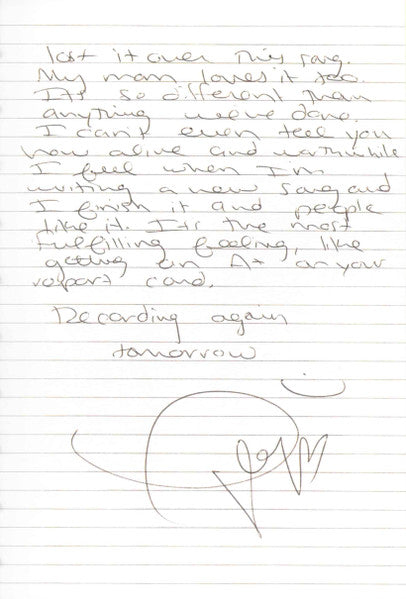 lost it over this song.
My mom loves it too.
It's so different than
anything we've done.
I can't even tell you
how alive and worthwhile
I feel when I'm
writing a new song and
I finish it and people
like it. It's the most
fulfilling feeling, like
getting an A+ on your
report card.
Recording again
tomorrow